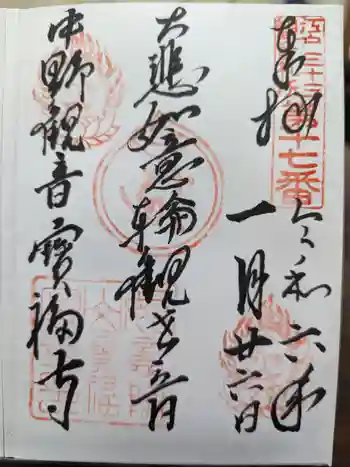 奉拝
三十三
十七番
令和六年
一月廿六日
大悲如意輪観世音
中野観音寳福寺